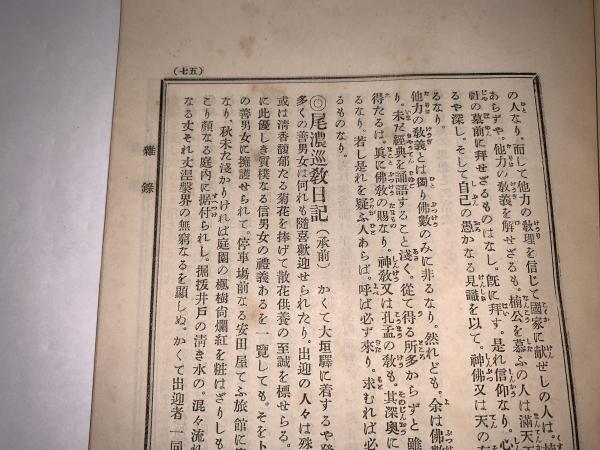 (七五)
雜錄
の人なり。而して他力の敎理を信じて國家に獻ぜしの人は。楠
あらずや。他力の敎義を解せざるも。楠公を慕ふの人は滿天下
軒の墓前に拜せざるものはなし。旣に拜す。是れ信仰なり。心
るや深し。そして自己の愚かなる見識を以て。神佛又は天の
るなり。
他力の敎義とは獨り佛敎のみに非るなり。然れども。余は佛敎
り。未だ經典を誦語すること淺く。從て得る所多からずと雖
得たるは。眞に佛敎の賜なり。神敎又は孔孟の敎も。其深奧に
るなり。若し是れを疑ふ人あらば。呼ば必ず來り。求むれば必
るものなり。
◎尾濃巡敎日記(承前) かくて大垣驛に着するや
多くの善男女は何れも隨喜歡迎せられたり。出迎の人々は殊
或は淸香馥郁たる菊花を捧げて散花供養の至誠を標せらる。
に此優しき質樸なる信男女の禮義あるを一覽しても。そを卜
の善男女に擁護せられて。停車塲前なる安田屋てふ旅館に
なり。秋未た淺かりければ庭園の楓樹尙爛紅を粧はざりしも
こり顏なる庭內に据付られし。掘拔井戶の淸き水の。混々流
なる丈それ丈涅槃界の無窮なるを顯しぬ。かくて出迎者一同